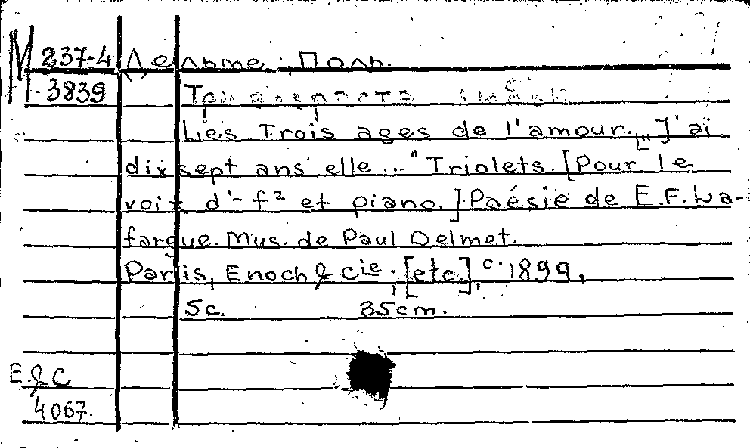 М 237-4 Дельме, Поль.
3839 Три возраста любви
Les Trois ages de l'amour. „J'ai
dix sept ans elle..." Triolets. [Pour le
voix d'-f² et piano.] Poésie de E.F. La-
fargue. Mus. de Paul Delmet.
Paris, Enoch & Cie, [etc.], c. 1899.
5c. 35cm.
E. & C
4067.